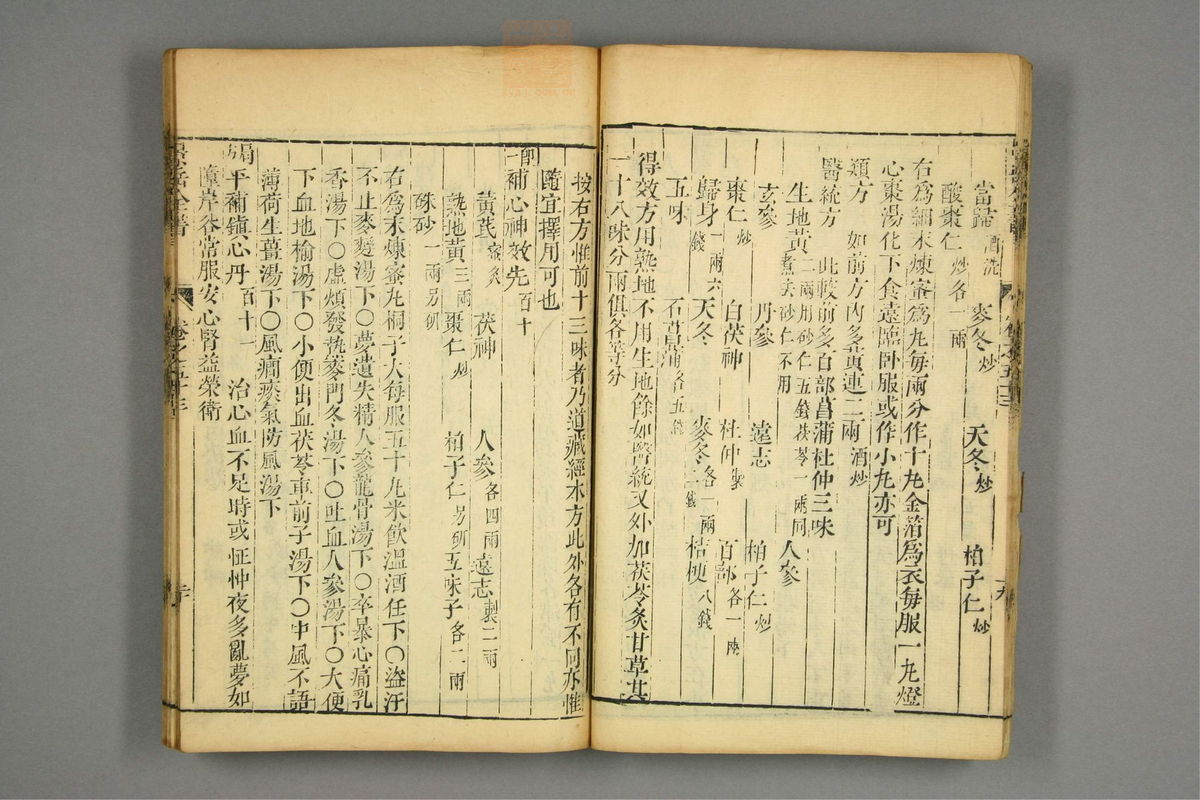 當歸酒洗 麥冬炒 天冬炒 柏子仁炒
酸棗仁炒各一兩
右爲細末煉蜜爲丸每兩分作十丸金箔爲衣每服一丸燈
心棗湯化下食遠臨臥服或作小丸亦可
類方 如前方內多黃連二兩酒炒
醫統方 此較前多百部菖蒲杜仲三味
生地黃二兩用砂仁五錢茯苓一兩同煮去砂仁不用 人參
玄參 丹參 遠志 柏子仁炒
棗仁炒 白茯神 杜仲製 百部各一兩
歸身一兩六錢 天冬 麥冬各一兩二錢 桔梗八錢
五味 石菖蒲各五錢
得效方用熟地不用生地餘如醫統又外加茯苓炙甘草共
一十八味分兩俱各等分
按右方惟前十三味者乃道藏經本方此外各有不同亦惟
隨宜擇用可也
補心神效先百十
黃芪蜜炙 茯神 人參各四兩 遠志製二兩
熟地黃三兩 棗仁炒 柏子仁另研 五味子各二兩
硃砂一兩另研
右爲末煉蜜丸桐子大每服五十丸米飲溫酒任下○盜汗
不止麥麩湯下○夢遺失精人參龍骨湯下○卒暴心痛乳
香湯下○虛煩發熱麥門冬湯下○吐血人參湯下○大便
下血地榆湯下○小便出血茯苓車前子湯下○中風不語
薄荷生薑湯下○風癎痰氣防風湯下
局方平補鎮心丹百十一 治心血不足時或怔忡夜多亂夢如
墮岸谷常服安心腎益榮衛
景岳全書
卷之五十三
二十